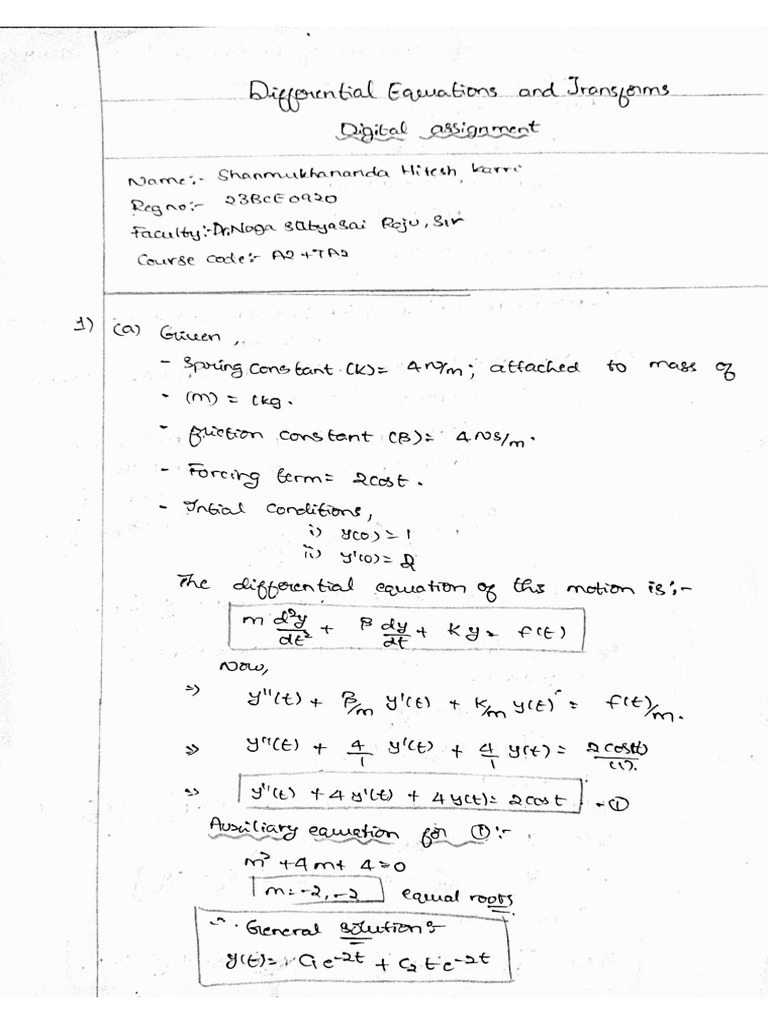 Differential Equations and Transforms
Digital assignment
Name:- Shanmukhananda Hitesh Karri
Reg no:- 23BCE0920
Faculty:- Dr.Naga Satyasai Raju, Sir
Course code:- A2+TA2
1) (a) Given,
- Spring constant (K)= 4 N/m; attached to mass of
- (m) = 1kg.
- friction constant (B)= 4 NS/m.
- Forcing term= 2cost.
- Intial conditions,
i) y(0)=1
ii) y'(0)=2
The differential equation of this motion is:-
m d²y/dt² + β dy/dt + Ky = f(t)
Now,
=> y''(t) + β/m y'(t) + K/m y(t) = f(t)/m.
=> y''(t) + 4/1 y'(t) + 4/1 y(t) = 2cost(t)/(1).
=> y''(t) + 4y'(t) + 4y(t)= 2cost -①
Auxiliary equation for ①:-
m² + 4m + 4=0
m=-2,-2 equal roots
∴ General solution:-
y(t)= C₁e^-2t + C₂te^-2t